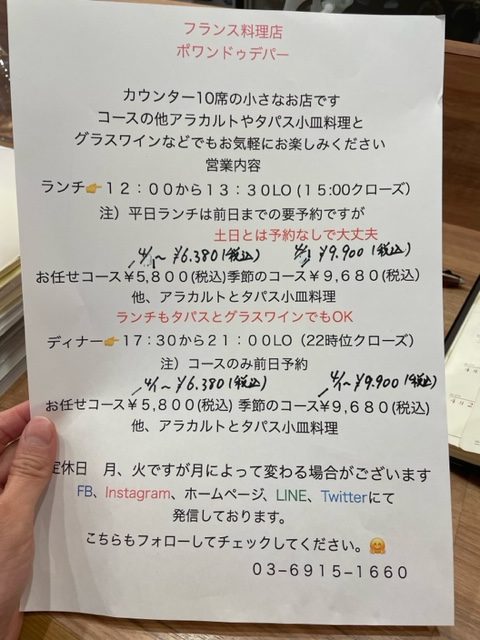 フランス料理店
ポワンドゥデパー
カウンター10席の小さなお店です
コースの他アラカルトやタパス小皿料理と
グラスワインなどでもお気軽にお楽しみください
営業内容
ランチ👉１２：００から１３：３０LO（１５:００クローズ）
注）平日ランチは前日までの要予約ですが
土日とは予約なしで大丈夫
4/1〜¥6.380(税込) 4/1 ¥9.900(税込)
お任せコース¥５,８００(税込)季節のコース¥９,６８０(税込)
他、アラカルトとタパス小皿料理
ランチもタパスとグラスワインでもOK
ディナー👉１７：３０から２１：００LO（22時位クローズ）
注）コースのみ前日予約
4/1〜¥6.380(税込) 4/1〜¥9.900(税込)
お任せコース¥５,８００(税込) 季節のコース¥９,６８０(税込)
他、アラカルトとタパス小皿料理
定休日　月、火ですが月によって変わる場合がございます
FB、Instagram、ホームページ、LINE、Twitterにて
発信しております。
こちらもフォローしてチェックしてください。🤗
０３−６９１５−１６６０